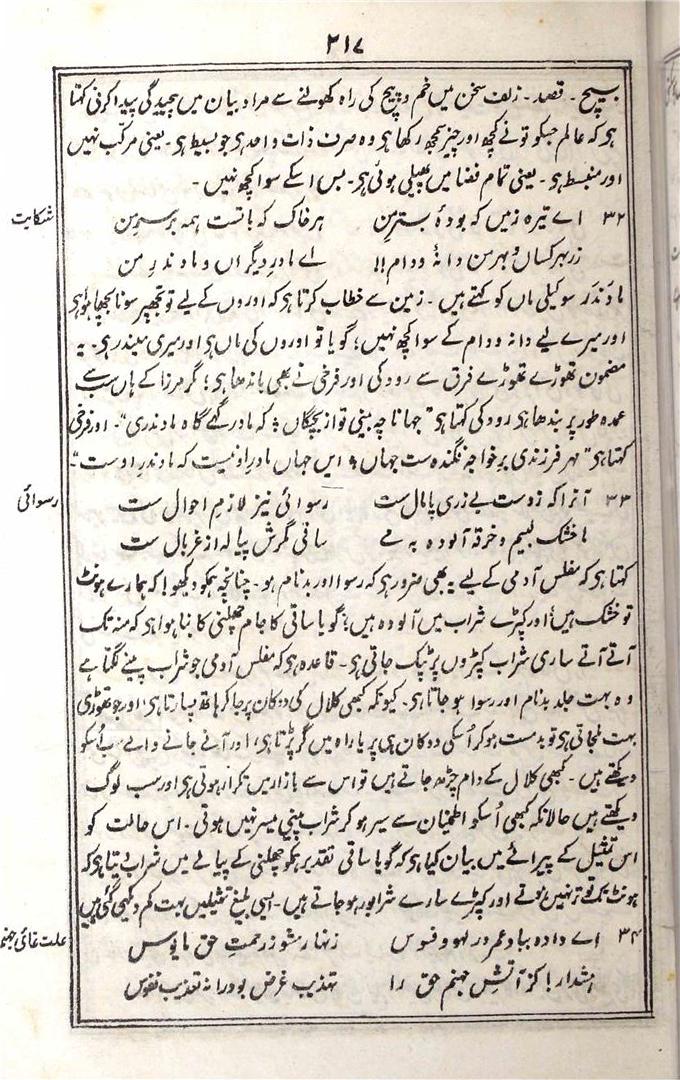 ۳۱۷
بسیچ - قصد - زلف سخن میں خم و پیچ کی راہ کھولنے سے مراد بیان میں پیچیدگی پیدا کرنی کہتا
ہی کہ عالم جسکو تونے کچھ اور چیز سمجھ رکھا ہی وہ صرف ذات واحد ہی جو بسیط ہی - یعنی مرکب نہیں
اور منبسط ہی - یعنی تمام فضا میں پھیلی ہوئی ہی - بس اسکے سوا کچھ نہیں -
۳۲ اے تیرہ زمیں کہ بودۂ بسترِ من هر خاک که باتست همه بر سرِ من
شکایت
زر بهر کسان و بهر من دانہ و دام !! اے مادرِ دیگراں و مادندرِ من
مادَندَر سوکیلی ماں کو کہتے ہیں - زمین سے خطاب کرتا ہی کہ اوروں کے لیے تو تجھپر سونا بچھا ہوا ہی
اور میرے لیے دانہ و دام کے سوا کچھ نہیں ؛ گویا تو اوروں کی ماں ہی اور میری میندر ہی - یہ
مضمون تھوڑے تھوڑے فرق سے رودکی اور فرخی نے بھی باندھا ہی ؛ مگر مرزا کے ہاں سب سے
عمدہ طور پر بندھا ہی رودکی کہتا ہی " جہانا چہ بینی تو از بچگاں ؛ کہ مادر گہے گاہ مادندری " - اور فرخی
کہتا ہی " مہر فرزندی بر خواجہ فگندہ ست جہاں ؛ ایں جہاں مادر او نیست کہ مادندر اوست " -
۳۳ آنرا کہ ز دست بے زری پامال ست رسوائی نیز لازمِ احوال ست
رسوائی
ما خشک لبیم و خرقہ آلودہ بہ مے ساقی مگرش پیالہ از غربال ست
کہتا ہی کہ مفلس آدمی کے لیے یہ بھی ضرور ہی کہ رسوا اور بدنام ہو - چنانچہ ہمکو دیکھو ! کہ ہمارے ہونٹ
تو خشک ہیں ؛ اور کپڑے شراب میں آلودہ ہیں ؛ گویا ساقی کا جام چھلنی کا بنا ہوا ہی کہ منہ تک
آتے آتے ساری شراب کپڑوں پر ٹپک جاتی ہی - قاعدہ ہی کہ مفلس آدمی جو شراب پینے لگتا ہے
وہ بہت جلد بدنام اور رسوا ہو جاتا ہی - کیونکہ کبھی کلال کی دوکان پر جا کر ہاتھ پسارتا ہی ؛ اور جو تھوڑی
بہت ملجاتی ہی تو بدمست ہو کر اُسکی دوکان ہی پر یا راہ میں گر پڑتا ہی ؛ اور آنے جانے والے سب اُسکو
دیکھتے ہیں - کبھی کلال کے دام چڑھ جاتے ہیں تو اس سے بازار میں تکرار ہوتی ہی اور سب لوگ
دیکھتے ہیں حالانکہ کبھی اُسکو اطمینان سے سیر ہو کر شراب پینی میسر نہیں ہوتی - اس حالت کو
اس تمثیل کے پیرائے میں بیان کیا ہی کہ گویا ساقی تقدیر ہمکو چھلنی کے پیالے میں شراب دیتا ہی کہ
ہونٹ تک تو تر نہیں ہوتے اور کپڑے سارے شرابور ہو جاتے ہیں - ایسی بلیغ تمثیلیں بہت کم دیکھی گئی ہیں
۳۴ اے دادہ بباد عمر در لہو و فسوس زنہار مشو ز رحمتِ حق مایوس
علت غائی جہنم
ہشدار ! کز آتشِ جہنم حق را تہذیب غرض بود نہ تعذیب نفوس